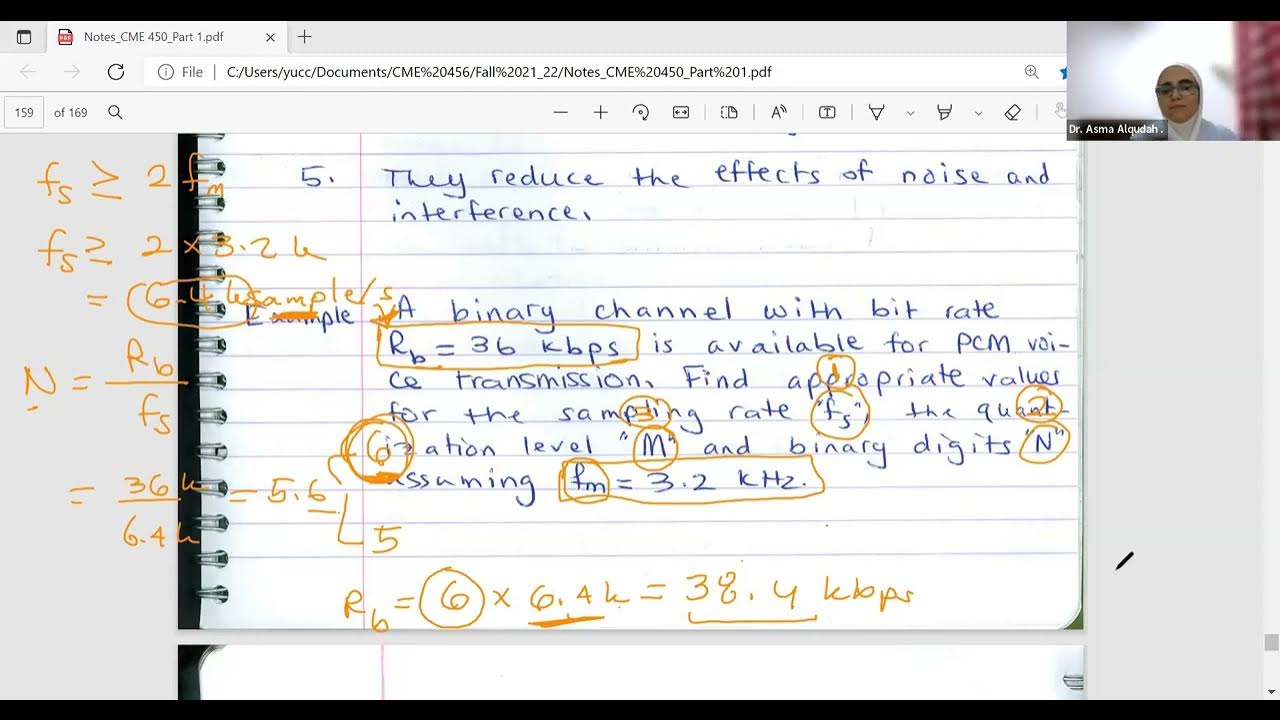 Notes_CME 450_Part 1.pdf
File
C:/Users/yucc/Documents/CME%20456/Fall%2021_22/Notes_CME%20450_Part%201.pdf
159 of 169
Dr. Asma Alqudah .
5. They reduce the effects of noise and
interference.
fs ≥ 2 fm
fs ≥ 2 × 3.2 k
= 6.4 ksample/s
N = Rb / fs
= 36 k / 6.4 k = 5.6
6
5
Example A binary channel with bit rate
Rb = 36 kbps is available for PCM voi-
ce transmission. Find appropriate values
for the sampling rate "fs", the quant-
ization level "M" and binary digits "N"
assuming fm = 3.2 kHz.
1
2
3
Rb = 6 × 6.4 k = 38.4 kbps